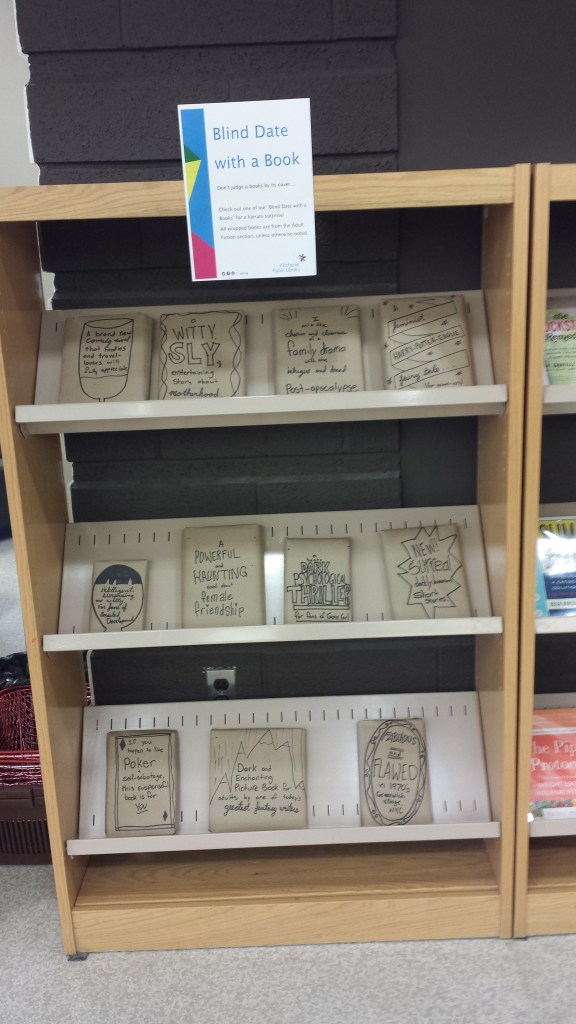 Blind Date
with a Book
Don't judge a books by its cover...
Check out one of our 'Blind Date with a
Books' for a literary surprise!
All wrapped books are from the Adult
Fiction section, unless otherwise noted.
Kitchener
Public Library
A brand new
comedy novel
that foodies
and travel-
lovers will
fully appreciate.
WITTY,
SLY,
entertaining
story about
motherhood
family drama
with the
intrigue and
Post-apocalypse
A
feminist
HARRY-POTTER-ESQUE
fairy tale
for fans of
Arrested
Development
A
POWERFUL
and
HAUNTING
novel about
female
friendship
A
DARK
PSYCHOLOGICAL
THRILLER
for fans of Gone Girl
NEW!
Surreal
short
stories!
If you
happen to like
Poker
self-sabotage,
this suspenseful
book is for
YOU
Dark and
Enchanting
Picture Book for
adults by one of today's
greatest fantasy writers
FABULOUS
and
FLAWED
in 1970's
Greenwich
village,
NYC
The Pip
Protoc